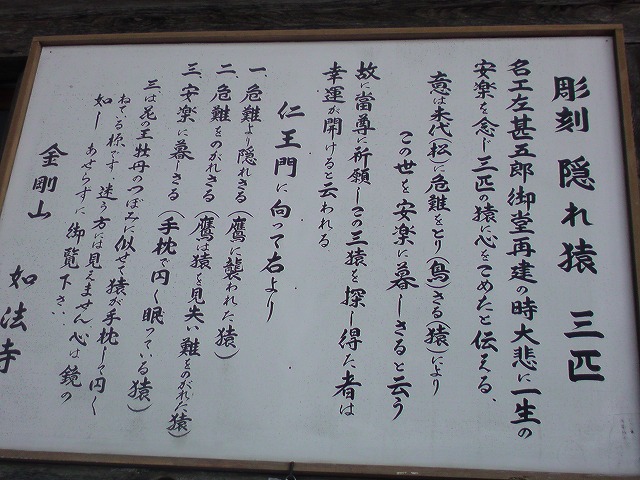 彫刻 隠れ猿 三匹
名工左甚五郎御堂再建の時大悲に一生の
安楽を念じ三匹の猿に心をこめたと伝える、
意は末代(松)に危難をとり(鳥)さる(猿)により
この世を安楽に暮しさると云う
故に當尊に祈願しこの三猿を探し得た者は
幸運が開けると云われる
仁王門に向って右より
一、危難より隠れさる(鷹に襲われた猿)
二、危難をのがれさる(鷹は猿を見失い難をのがれた猿)
三、安楽に暮しさる(手枕で円く眠っている猿)
三は花の王牡丹のつぼみに似せて猿が手枕して円く
ねている様です。迷う方には見えません心は鏡の
如し あせらずに御覧下さい、
金剛山 如法寺